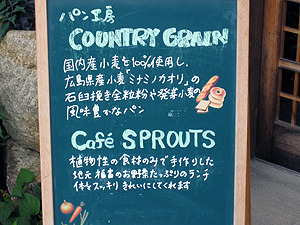 パン工房
COUNTRY GRAIN
国内産小麦を100%使用し、
広島県産小麦「ミナミノカオリ」の
石臼挽き全粒粉や発芽小麦の
風味豊かなパン
Café SPROUTS
植物性の食材のみで手作りした
地元 福富のお野菜たっぷりのランチ
体もスッキリ きれいにしてくれます